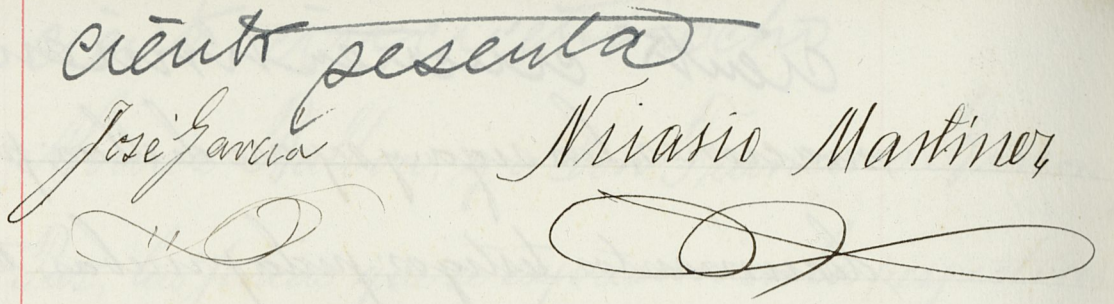 ciento sesenta
José García Nicasio Martinez